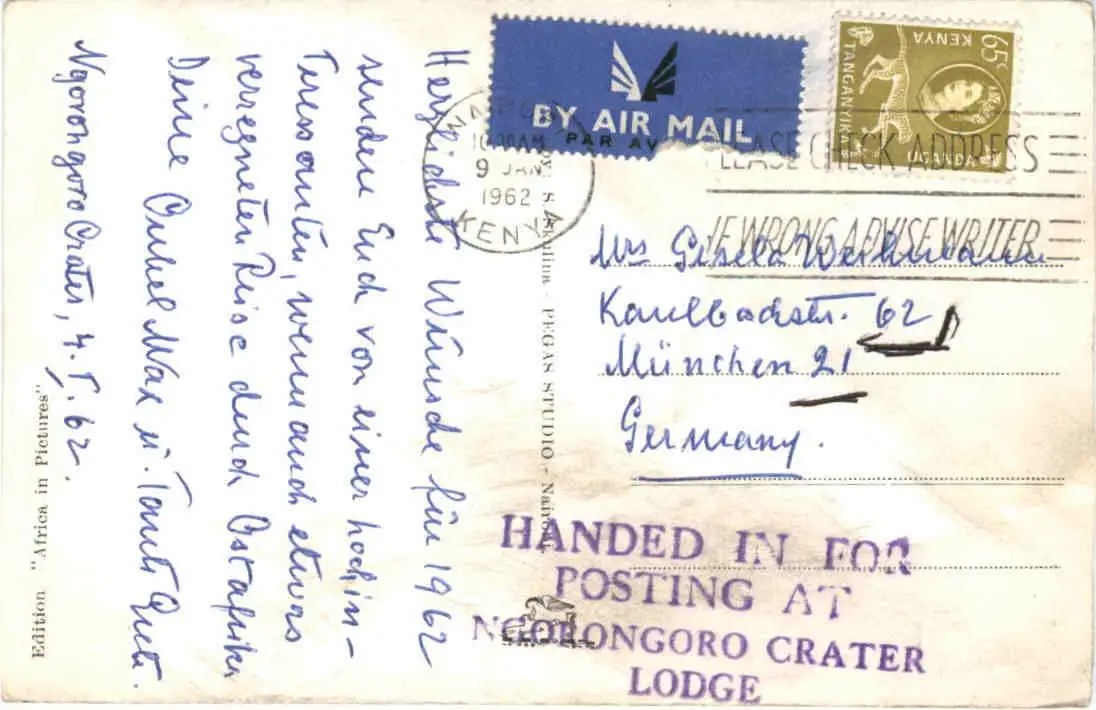 Herzlichste Wünsche für 1962
senden Euch von einer hochin-
teressanten, wenn auch etwas
verregneten Reise durch Ostafrika
Deine Onkel Max u. Tante Grete.
Ngorongoro Crater, 4.I.62.
Edition "Africa in Pictures"
BY AIR MAIL
PAR AV
NAIROBI
10 00AM
9 JAN
1962
KENYA
65c
KENYA
TANGANYIKA
UGANDA
PLEASE CHECK ADDRESS
IF WRONG ADVISE WRITER
PEGAS STUDIO - Nairobi
Mrs Gisela
Kaulbachstr. 62
München 21
Germany.
HANDED IN FOR
POSTING AT
NGORONGORO CRATER
LODGE